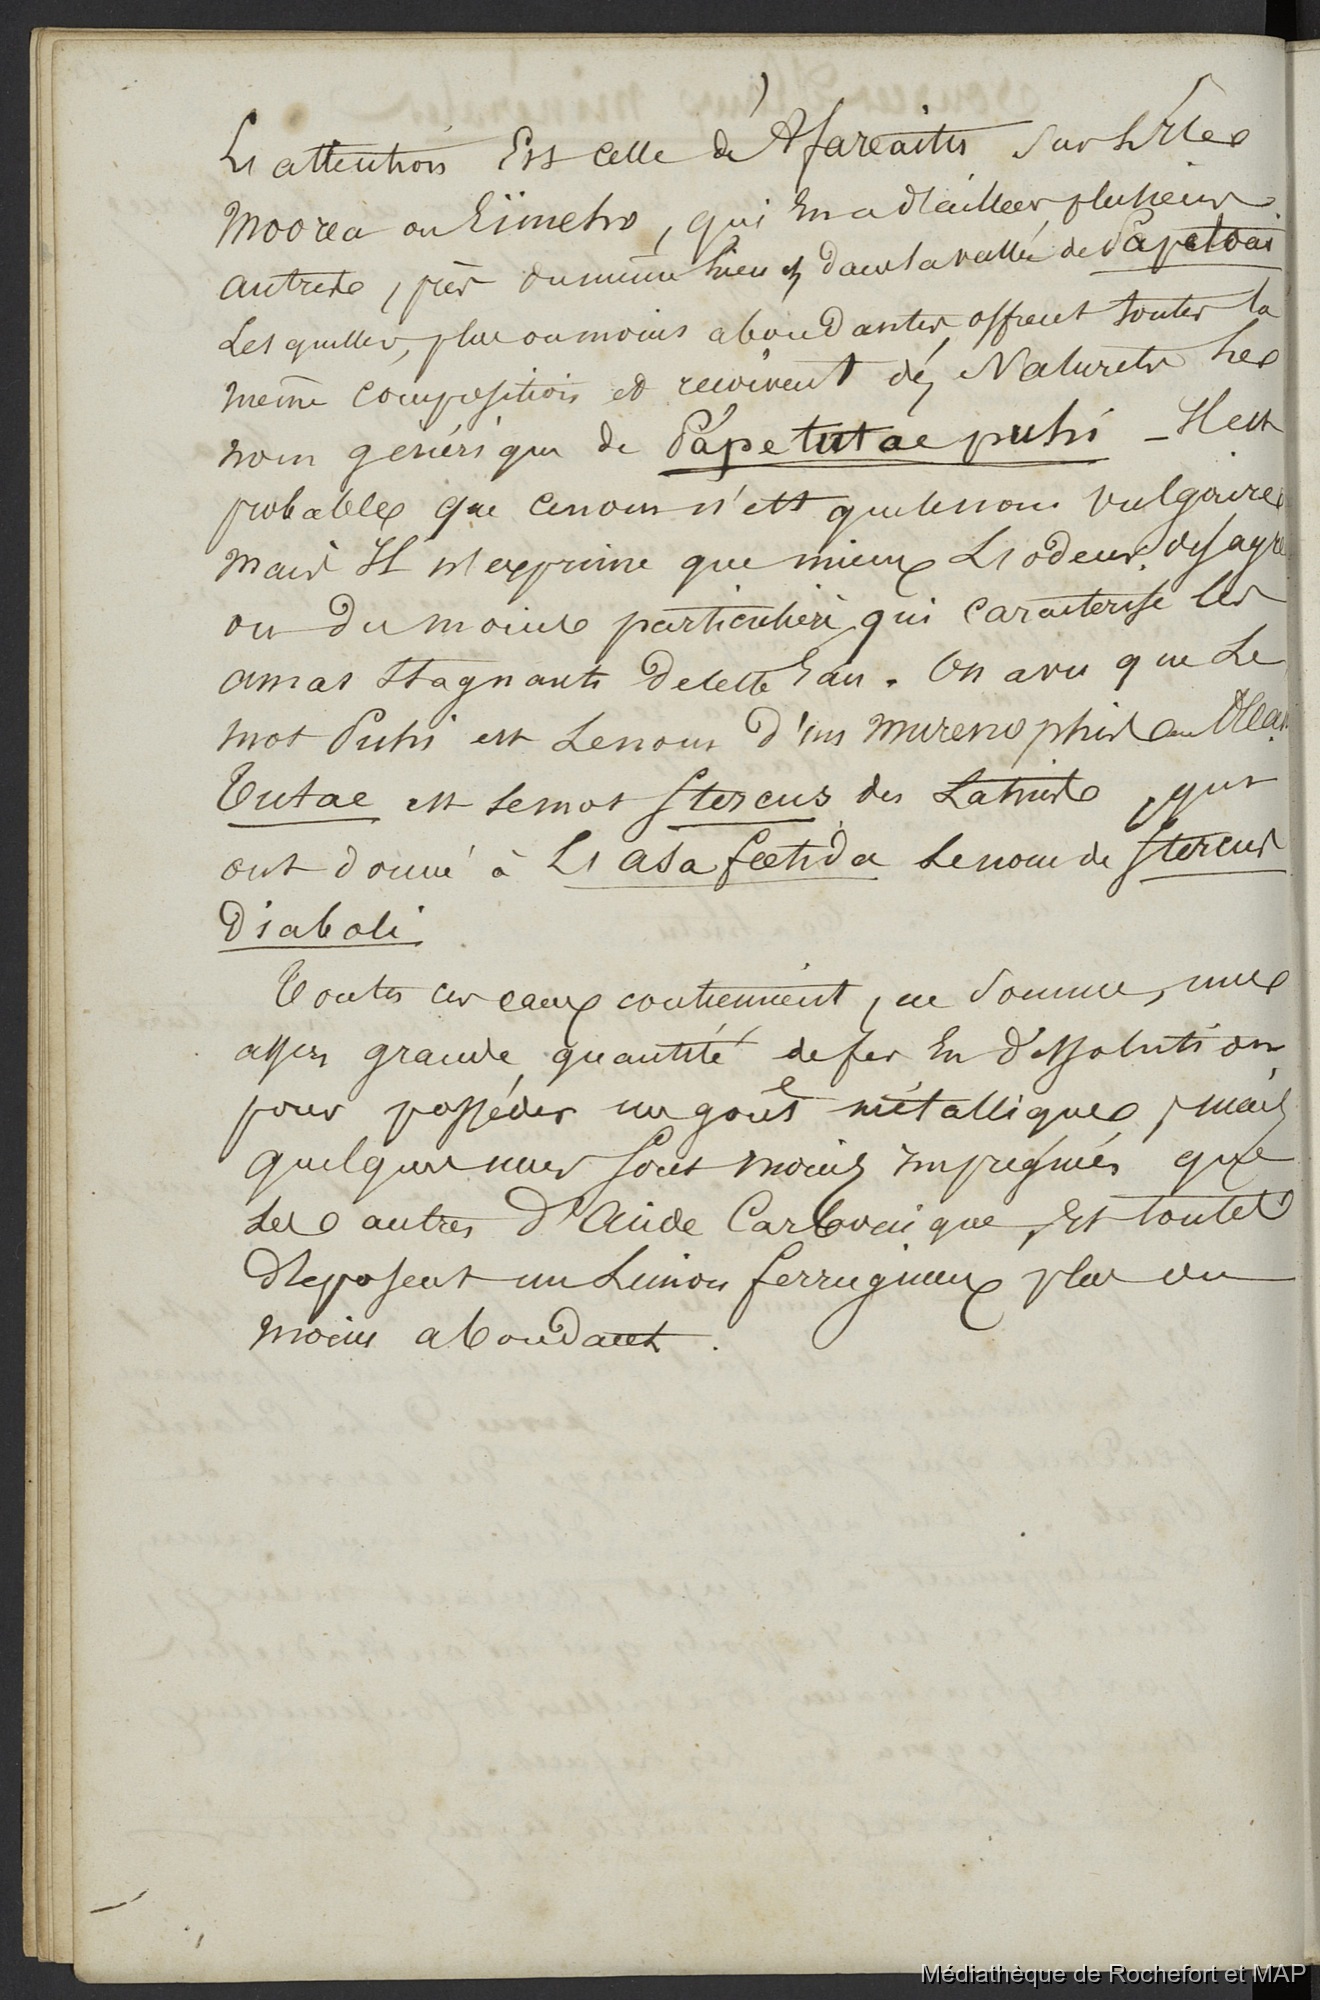 L'attention Est celle de Afareaitu sur L'Ile
Moorea ou Eïmeho, qui En a d'ailleurs plusieurs
autres, près du même lieu et dans la vallée de Papetoai
Lesquelles, plus ou moins abondantes, offrent toutes la
même composition et reçoivent des Naturels Le
nom générique de Papetutae puhi _ Il est
probable que ce nom n'est que le nom vulgaire
mais Il n'exprime que mieux L'odeur désagré
ou du moins particulière qui caractérise les
amas stagnants de cette Eau. On a vu que Le
mot Puhi est Le nom d'un murenophis
Tutae est le mot stercus des Latins, qui
ont donné à L'asa fœtida Le nom de stercus
Diaboli.
Toutes ces eaux contiennent, en somme, une
assez grande quantité de fer En dissolution
pour posséder un goût métallique, mais
quelques unes sont moins imprégnées que
Les autres d'Acide Carbonique, Et toutes
déposent un Limon ferrugineux plus ou
moins abondant.
Médiathèque de Rochefort et MAP